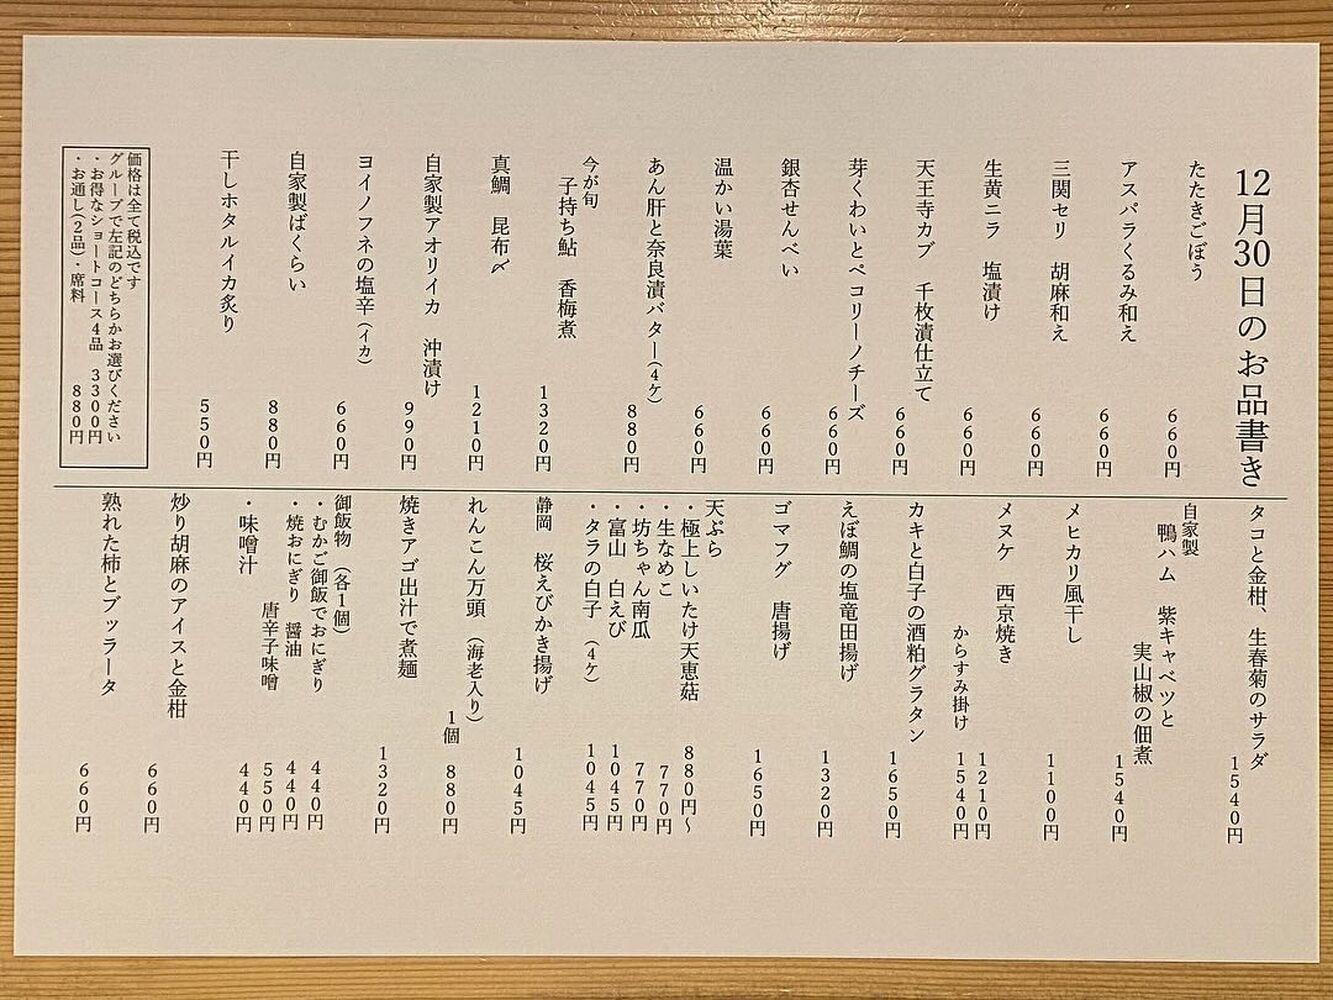 12月30日のお品書き
たたきごぼう 660円
アスパラくるみ和え 660円
三関セリ 胡麻和え 660円
生黄ニラ 塩漬け 660円
天王寺カブ 千枚漬仕立て 660円
芽くわいとペコリーノチーズ 660円
銀杏せんべい 660円
温かい湯葉 660円
あん肝と奈良漬バター(4ケ) 880円
今が旬
子持ち鮎 香梅煮 1320円
真鯛 昆布〆 1210円
自家製アオリイカ 沖漬け 990円
ヨイノフネの塩辛(イカ) 660円
自家製ばくらい 880円
干しホタルイカ炙り 550円
価格は全て税込です
グループで左記のどちらかお選びください
・お得なショートコース4品 3300円
・お通し(2品)・席料 880円
タコと金柑、生春菊のサラダ 1540円
自家製
鴨ハム 紫キャベツと
実山椒の佃煮 1540円
メヒカリ風干し 1100円
メヌケ 西京焼き 1210円
からすみ掛け 1540円
カキと白子の酒粕グラタン 1650円
えぼ鯛の塩竜田揚げ 1320円
ゴマフグ 唐揚げ 1650円
天ぷら
・極上しいたけ天恵菇 880円〜
・生なめこ 770円
・坊ちゃん南瓜 770円
・富山 白えび 1045円
・タラの白子(4ケ) 1045円
静岡 桜えびかき揚げ 1045円
れんこん万頭(海老入り) 1個 880円
焼きアゴ出汁で煮麺 1320円
御飯物(各1個)
・むかご御飯でおにぎり 440円
・焼おにぎり 醤油 440円
唐辛子味噌 550円
・味噌汁 440円
炒り胡麻のアイスと金柑 660円
熟れた柿とブッラータ 660円